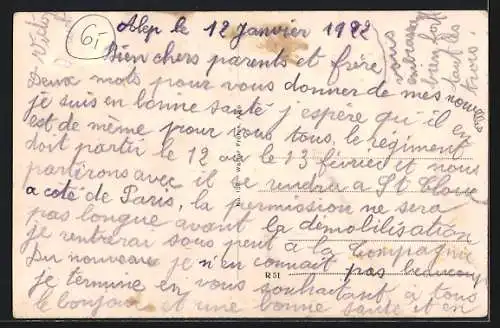 61
Alep le 12 Janvier 1922
Bien chers parents et frère
Deux mots pour vous donner de mes nouvelles
je suis en bonne santé j'espère qu'il en
est de même pour vous tous, le régiment
doit partir le 12 ou le 13 février et nous
partirons avec il se rendra a St Cloue
a coté de Paris, la permission ne sera
pas longue avant la démobilisation
je rentrerai sous peut a la Compagnie
Du nouveau je n'en connait pas beaucoup
je termine en vous souhaitant a tous
le bonjour et une bonne santé et en
vous
embrassant
bien fort
tous les
trois.
Victor
R 51